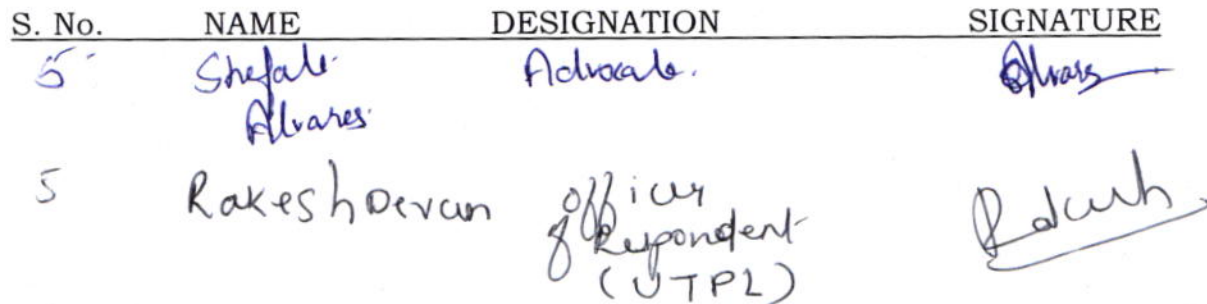 S. No. NAME DESIGNATION SIGNATURE
5 Shefali Advocate.
Alvares Alvares
5 Rakesh Devan officer
of Respondent Rakesh
(UTPL)